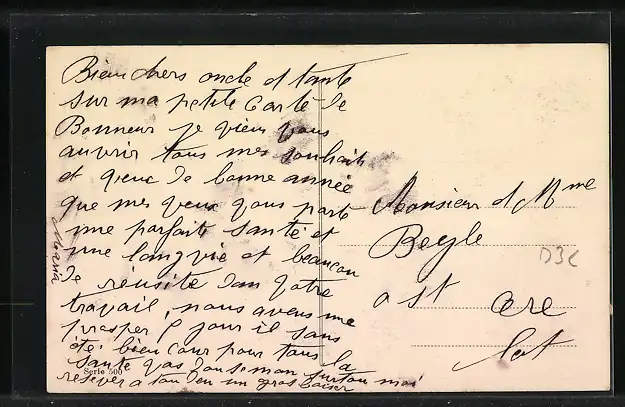 Bien chers oncle et tante
sur ma petite carte de
Bonneur je viens vous
auvrir tous mes souhaits
et veux de bonne année
que mes veux vous porte
une parfaite santé et
une longvie et beaucou
de réusite dan votre
travail, nous avons une
jour il sans
été. bien cour pour tous la
sante surtou moi
resever a tou un gros baiser
Maria
Serie 500
Monsieur et Mme
Beyle
a st cere
lot
D3C